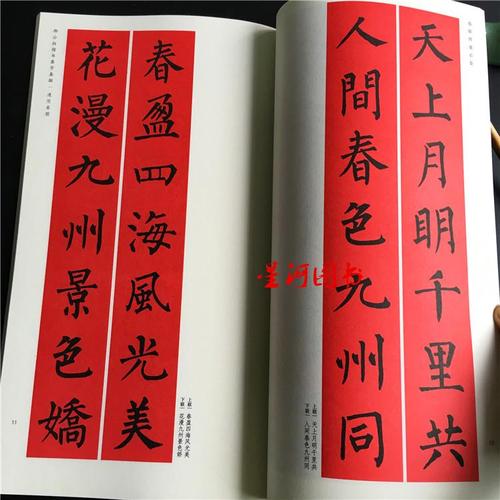 春联挥毫必备
天上月明千里共
人間春色九州同
上联｜天上月明千里共
下联｜人间春色九州同
春盈四海風光美
花漫九州景色嬌
上联｜春盈四海风光美
下联｜花漫九州景色娇
星河图书